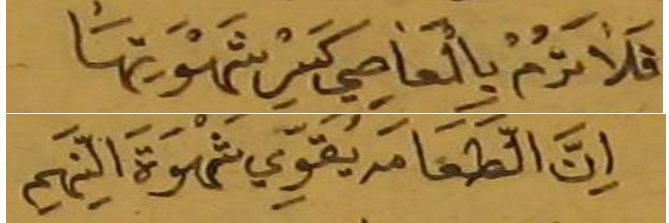 فَلَا تَرُمْ بِالْمَعَاصِي كَسْرَ شَهْوَتِهَا
اِنَّ الطَّعَامَ يُقَوِّي شَهْوَةَ النَّهِمِ